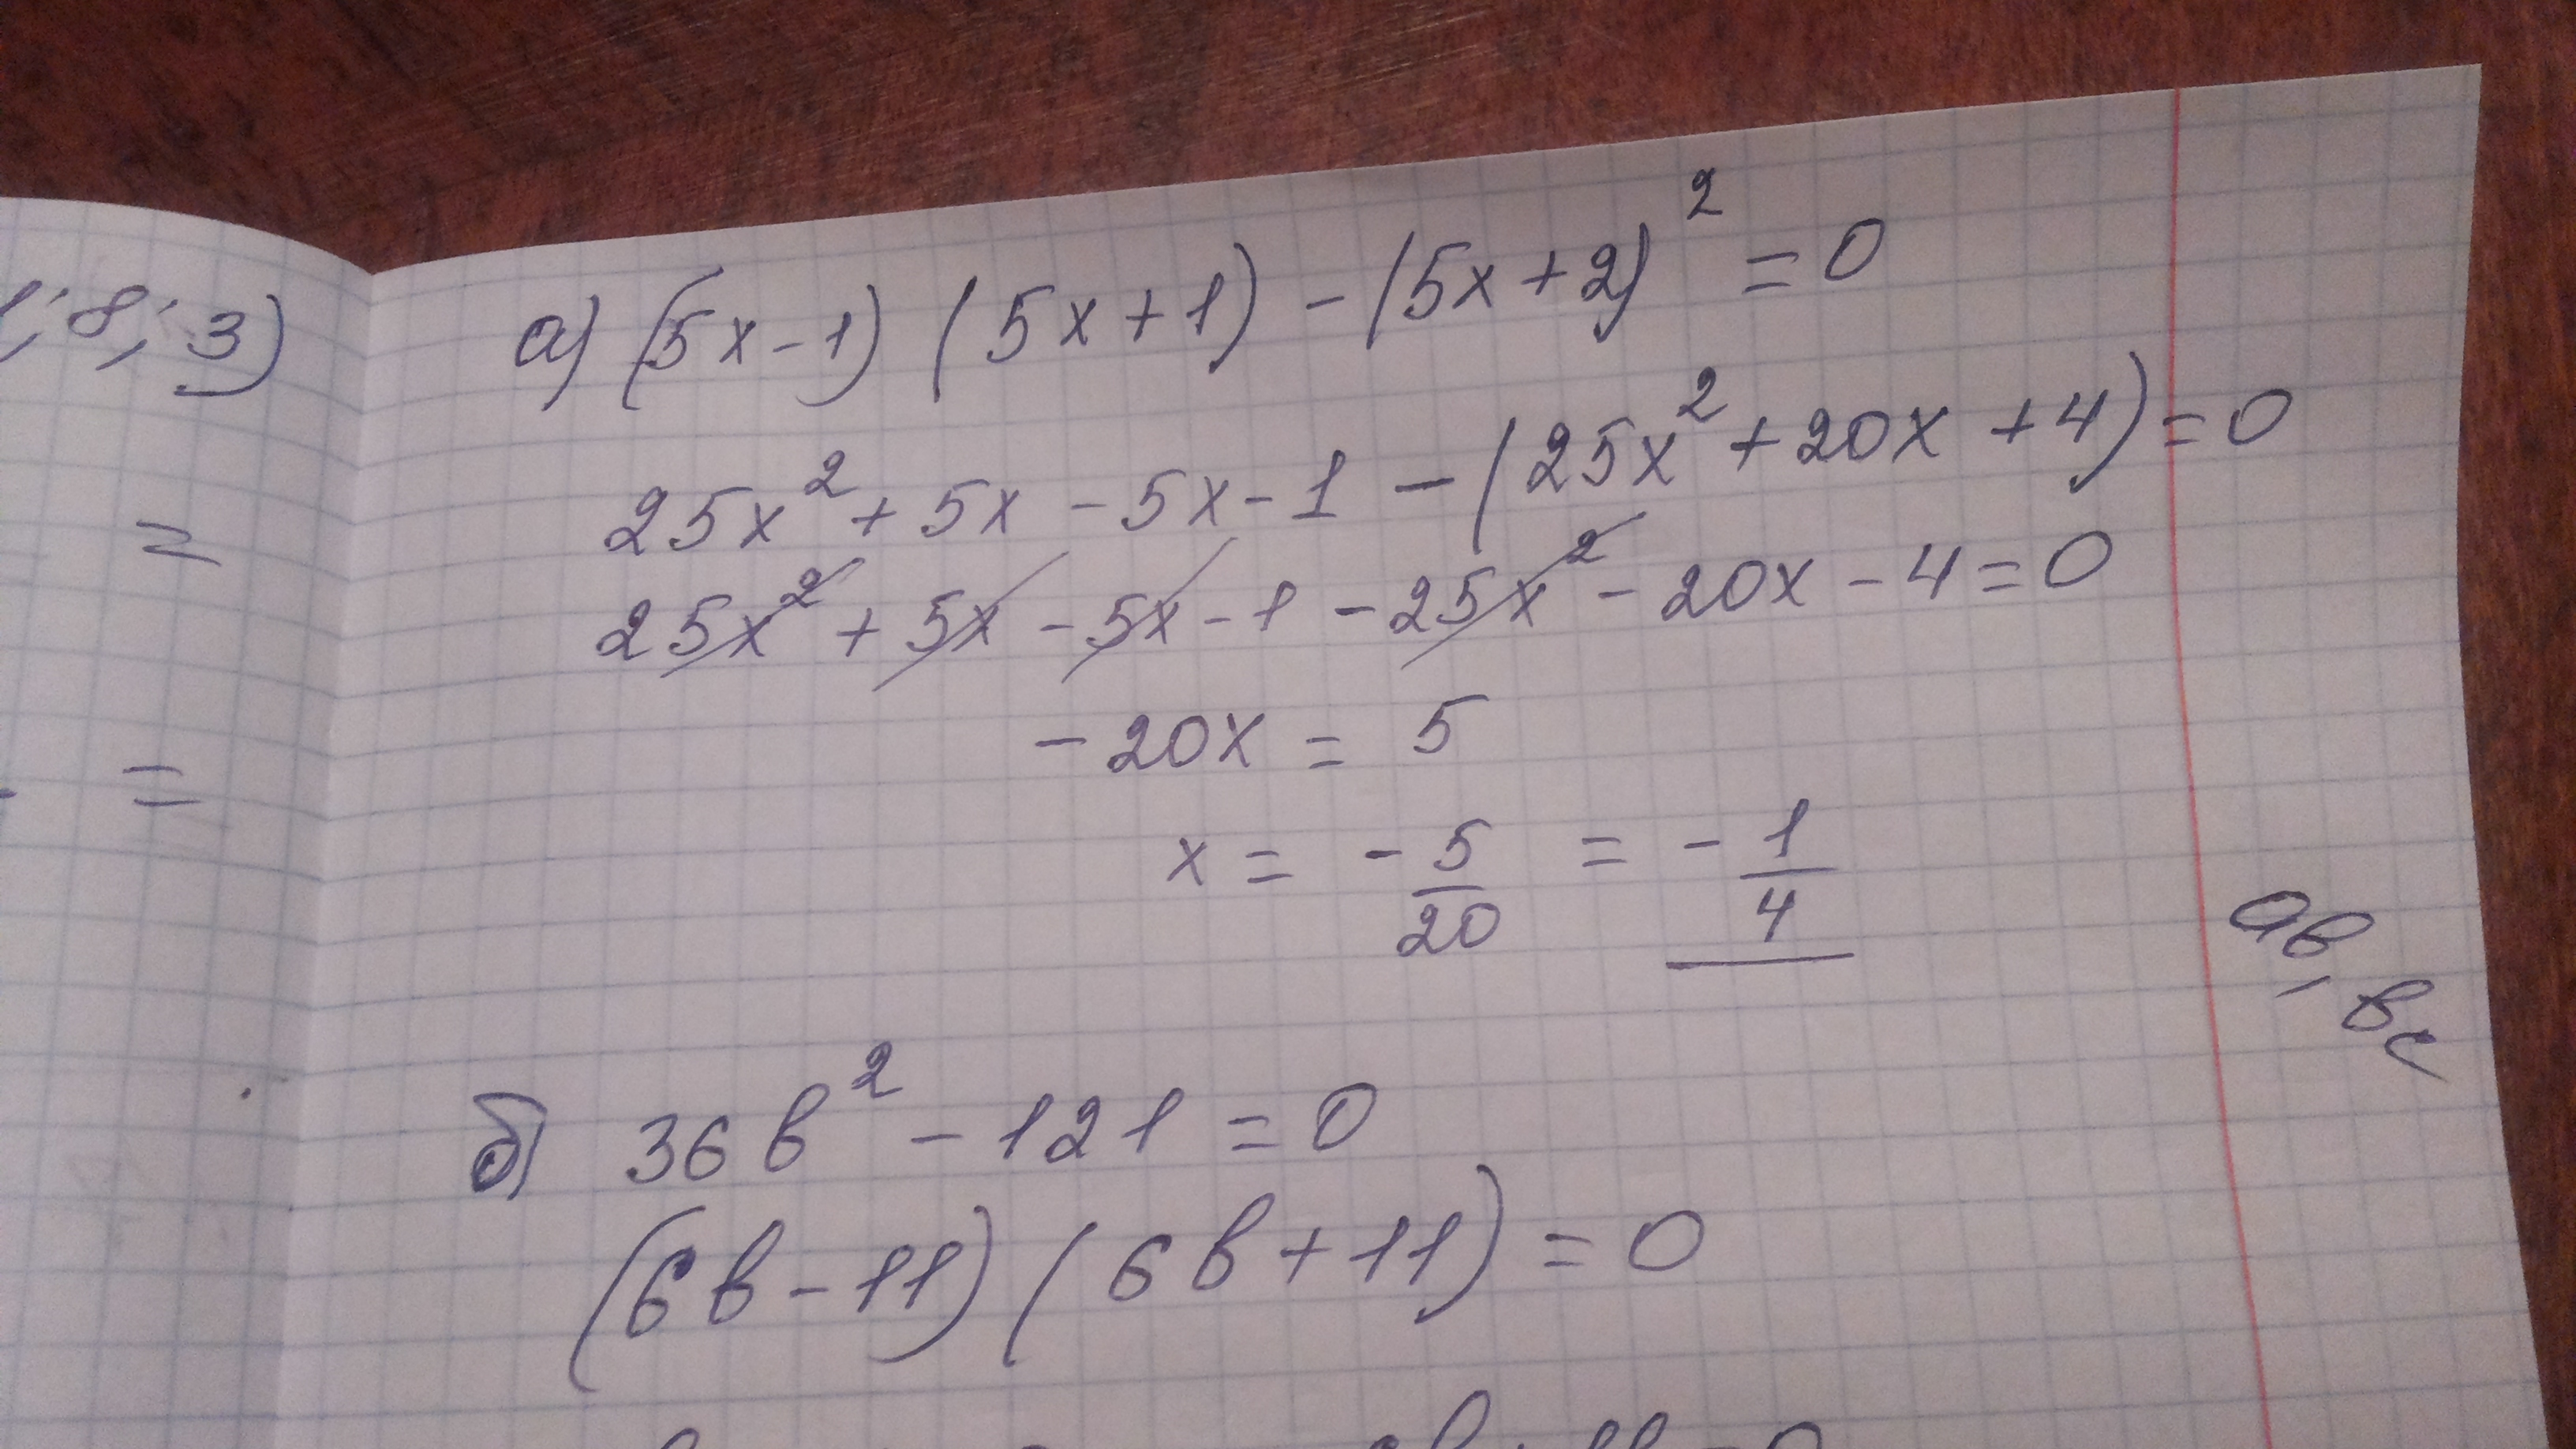 1; 8; 3)
=
=
а) (5x-1) (5x+1) - (5x+2)² = 0
25x² + 5x - 5x - 1 - (25x² + 20x + 4) = 0
25x² + 5x - 5x - 1 - 25x² - 20x - 4 = 0
-20x = 5
x = - 5/20 = - 1/4
ав, вс
б) 36в² - 121 = 0
(6в - 11) (6в + 11) = 0